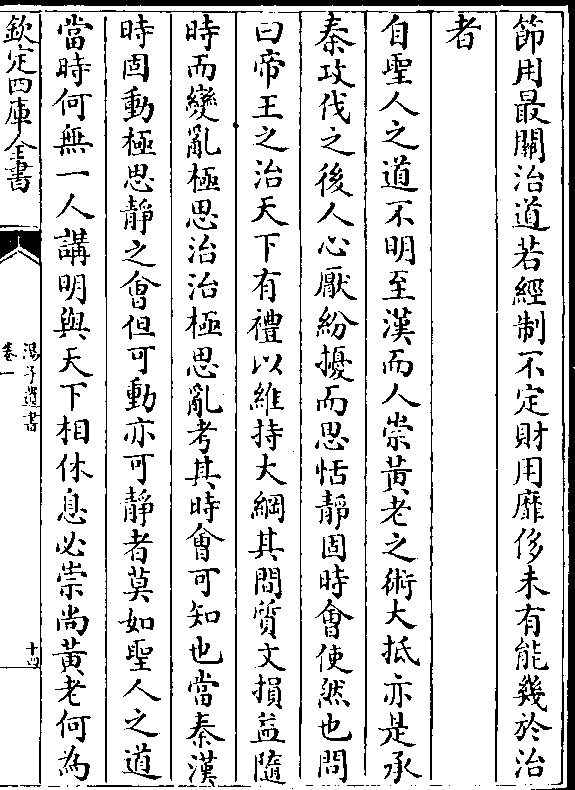 節用最關治道若經制不定財用靡侈未有能幾於治
者
自聖人之道不明至漢而人崇黃老之術大抵亦是承
秦攻伐之後人心厭紛擾而思恬靜固時會使然也問
曰帝王之治天下有禮以維持大綱其間質文損益隨
時而變亂極思治治極思亂考其時會可知也當秦漢
時固動極思靜之會但可動亦可靜者莫如聖人之道
當時何無一人講明與天下相休息必崇尚黃老何為
欽定四庫全書
湯子遺書
卷一
十四